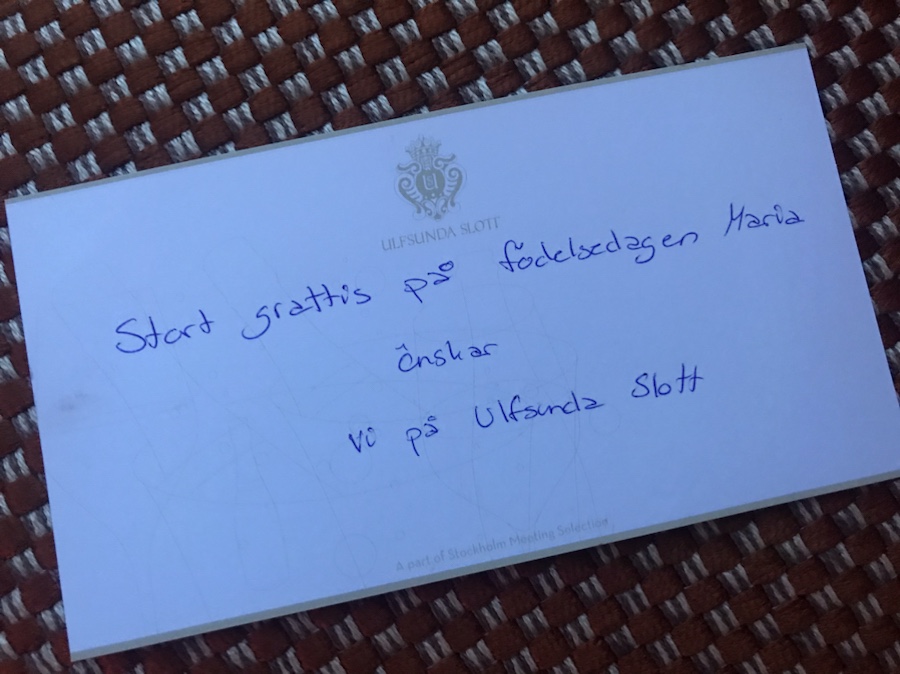 U
ULFSUNDA SLOTT
Stort grattis på födelsedagen Maria
önskar
vi på Ulfsunda Slott
A part of Stockholm Meeting Selection